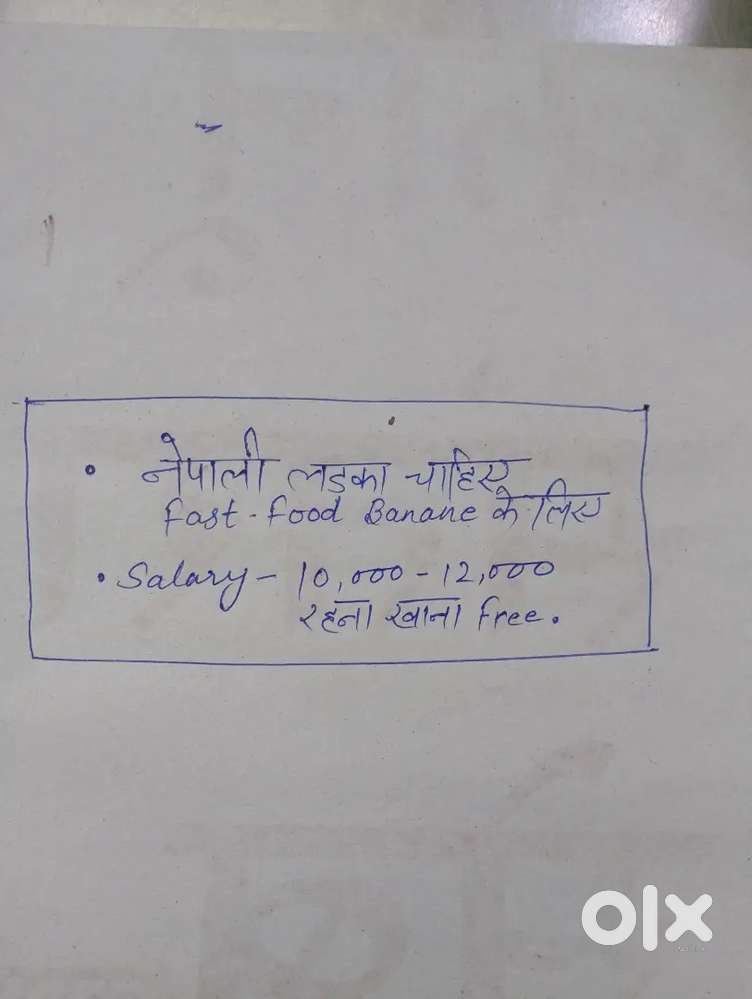 • नेपाली लड़का चाहिए
Fast-Food Banane के लिए
• Salary - 10,000 - 12,000
रहना खाना free.
olx